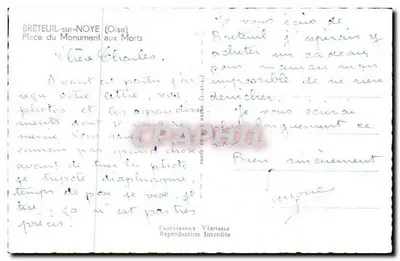 BRETEUIL-sur-NOYE (Oise)
Place du Monument aux Morts
Avant de partir j'ai
reçu votre lettre, vos
photos et les agrandisse
ments dont je vous
connais pas grand chose
avant de tirer la photo
je tapote diaphragme,
temps de pose je vise, je
tire; ça n'est pas très
précis.
Je vous écris de
Breteuil j'espérais y
acheter un cadeau
pour maman mais
impossible de ne rien
dénicher.
Je vous écrirai
plus longuement ce
Bien sincèrement
CPARPHIL
Photographie Véritable
Reproduction Interdite